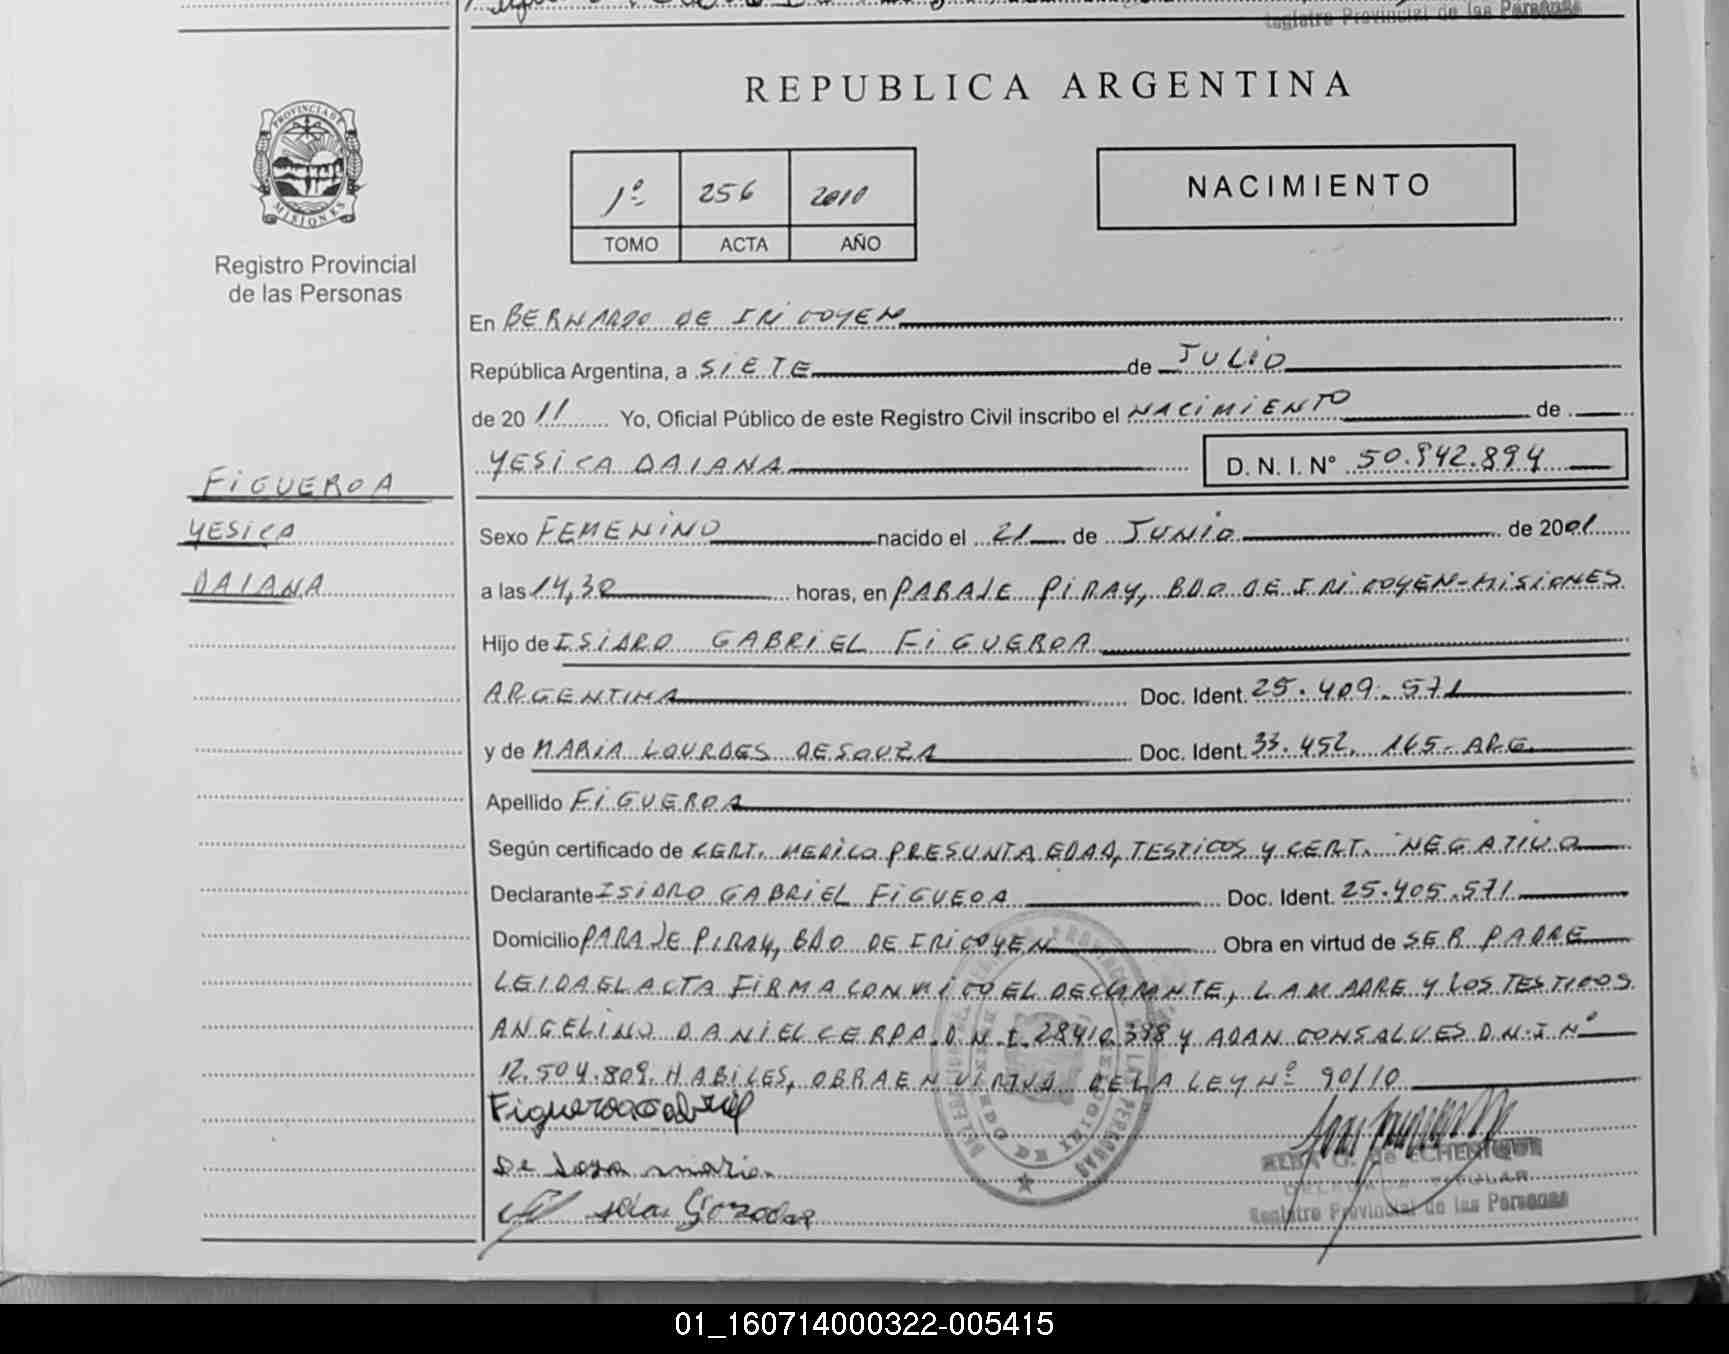 Registro Provincial de las Personas
REPUBLICA ARGENTINA
PROVINCIA DE
MISIONES
1º 256 2010
TOMO ACTA AÑO
NACIMIENTO
Registro Provincial
de las Personas
En BERNARDO DE IRIGOYEN
República Argentina, a SIETE de JULIO
de 20 11 Yo, Oficial Público de este Registro Civil inscribo el NACIMIENTO de
YESICA DAIANA D. N. I. N° 50.942.894
FIGUEROA
YESICA
DAIANA
Sexo FEMENINO nacido el 21 de JUNIO de 2001
a las 14,30 horas, en PARAJE PIRAY, BDO DE IRIGOYEN-MISIONES
Hijo de ISIDRO GABRIEL FIGUEROA
ARGENTINA Doc. Ident. 25.409.571
y de MARIA LOURDES DESOUZA Doc. Ident. 33.452.165-ARG.
Apellido FIGUEROA
Según certificado de CERT. MEDICO PRESUNTA EDAD, TESTIGOS Y CERT. NEGATIVO
Declarante ISIDRO GABRIEL FIGUEOA Doc. Ident. 25.405.571
Domicilio PARAJE PIRAY, BDO DE IRIGOYEN Obra en virtud de SER PADRE
LEIDA EL ACTA FIRMA CONMIGO EL DECLARANTE, LA MADRE Y LOS TESTIGOS
ANGELINO DANIEL CERPA D.N.I. 28410.398 Y ADAN GONSALVES D.N.I Nº
12.504.809. HABILES, OBRA EN VIRTUD DE LA LEY Nº 90/10
Figueroa Gabriel
De Sosa maria
ALBA G. de ECHENIQUE
DELEGADA TITULAR
Registro Provincial de las Personas
01_160714000322-005415